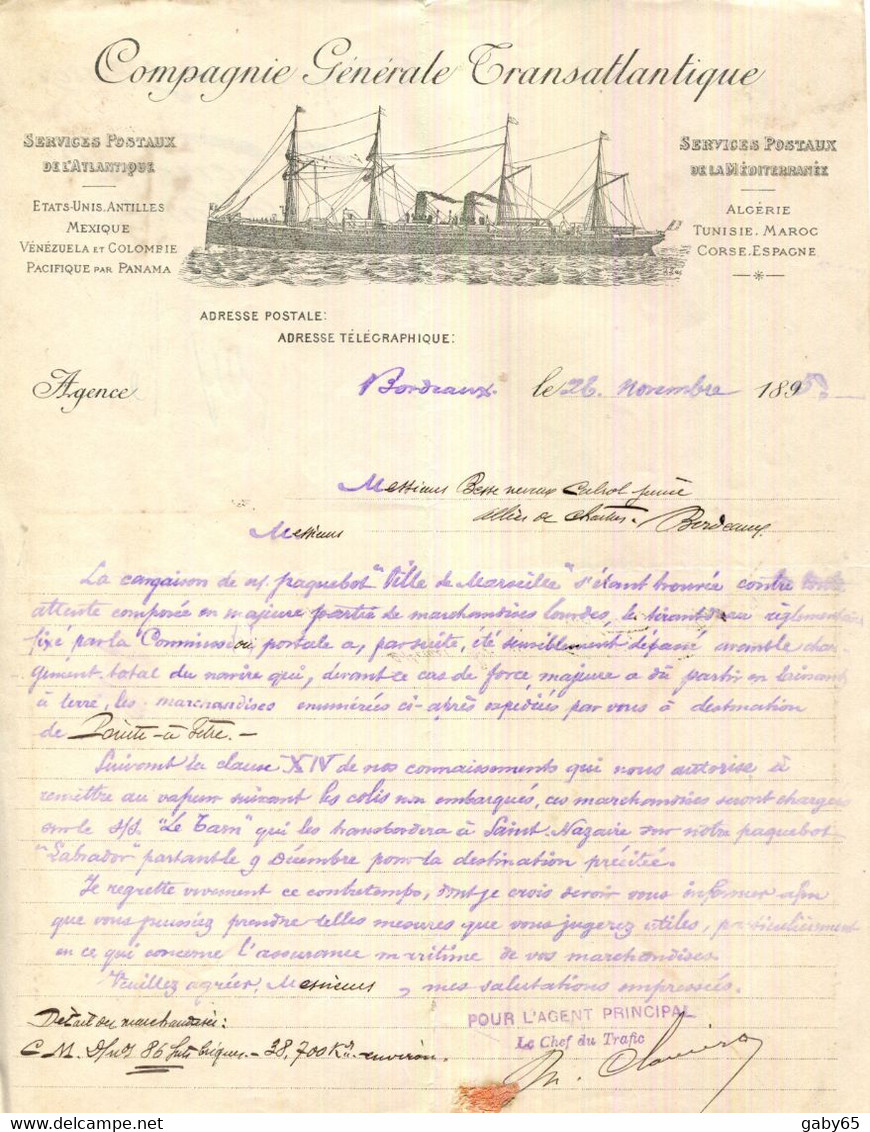 Compagnie Générale Transatlantique
SERVICES POSTAUX
DE L'ATLANTIQUE
ETATS-UNIS. ANTILLES
MEXIQUE
VÉNÉZUELA ET COLOMBIE
PACIFIQUE PAR PANAMA
SERVICES POSTAUX
DE LA MÉDITERRANÉE
ALGÉRIE
TUNISIE. MAROC
CORSE. ESPAGNE
ADRESSE POSTALE:
ADRESSE TÉLÉGRAPHIQUE:
Agence Bordeaux le 26 novembre 189
Messieurs Besse neveux Cabrol
Allées de Chartres. Bordeaux
Messieurs
La cargaison de n/ paquebot "Ville de Marseille" s'étant trouvée contre toute
attente composée en majeure partie de marchandises lourdes, le tirant d'eau réglementaire
fixé par la Commission postale a, par suite, été sensiblement dépassé avant le char-
gement total du navire qui, devant ce cas de force majeure a dû partir en laissant
à terre, les marchandises enumérées ci-après expédiées par vous à destination
de Pointe-à-Pitre.-
Suivant la clause XIV de nos connaissements qui nous autorise à
remettre au vapeur suivant les colis non embarqués, ces marchandises seront chargées
sur le s/s "Le Tarn" qui les transbordera à Saint-Nazaire sur notre paquebot
"Labrador" partant le 9 Décembre pour la destination précitée.
Je regrette vivement ce contretemps, dont je crois devoir vous informer afin
que vous puissiez prendre telles mesures que vous jugerez utiles, particulièrement
en ce qui concerne l'assurance maritime de vos marchandises.
Veuillez agréer, Messieurs, mes salutations empressées.
POUR L'AGENT PRINCIPAL
Le Chef du Trafic
Détail des marchandises:
C M. 86 futs briques. - 38,700 K environ.
gaby65